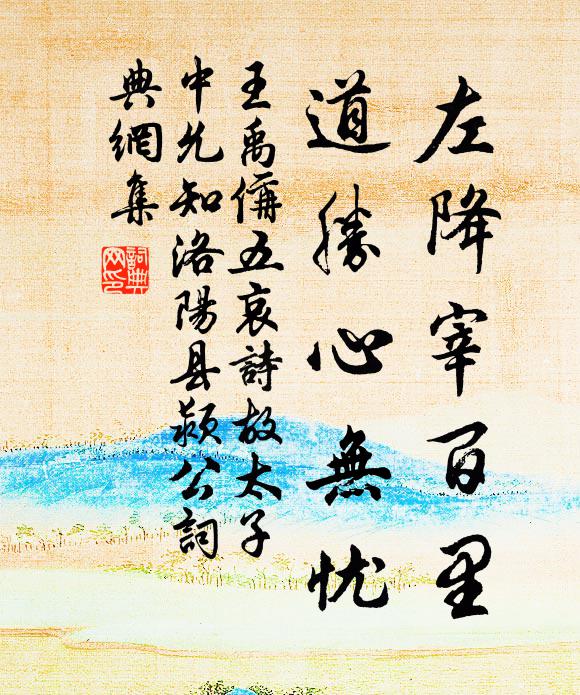 左降宰百里
道勝心無忧
王禹偁五哀詩故太子
中允知洛陽县潁公詞
典網集
詞典网印